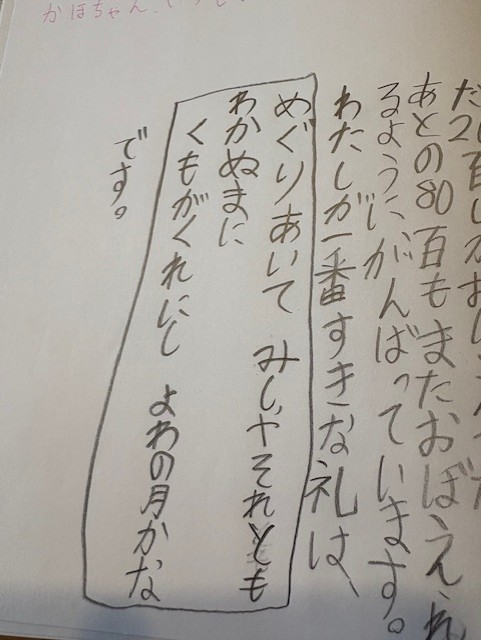 かほちゃん、
20百しか
あとの80百もまたおぼえれ
るように、がんばっています。
わたしが一番すきな礼は、
めぐりあいて みしやそれとも
わかぬまに
くもがくれにし よわの月かな
です。